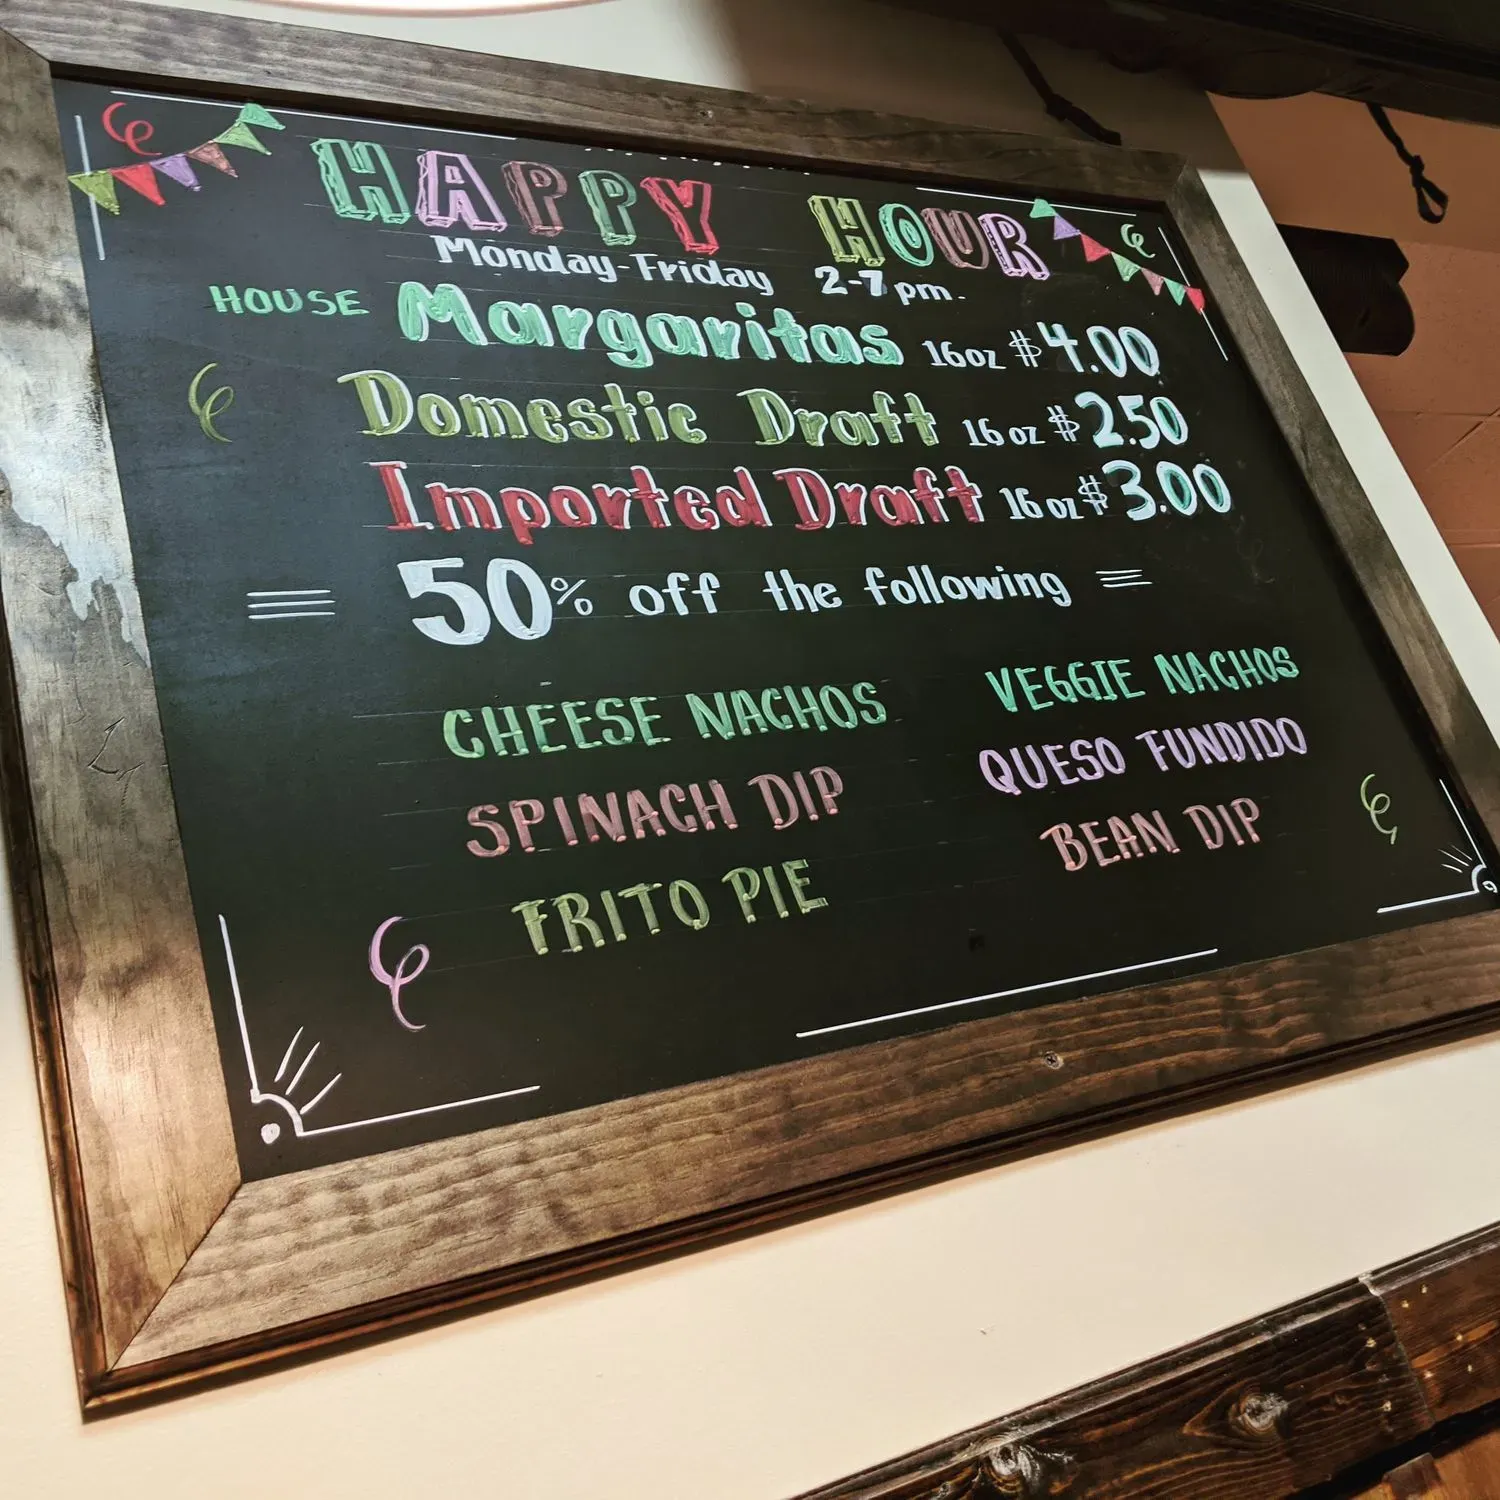 HAPPY HOUR
Monday-Friday 2-7 pm.
HOUSE Margaritas 16oz $4.00
Domestic Draft 16oz $2.50
Imported Draft 16oz $3.00
50% off the following
CHEESE NACHOS
SPINACH DIP
FRITO PIE
VEGGIE NACHOS
QUESO FUNDIDO
BEAN DIP